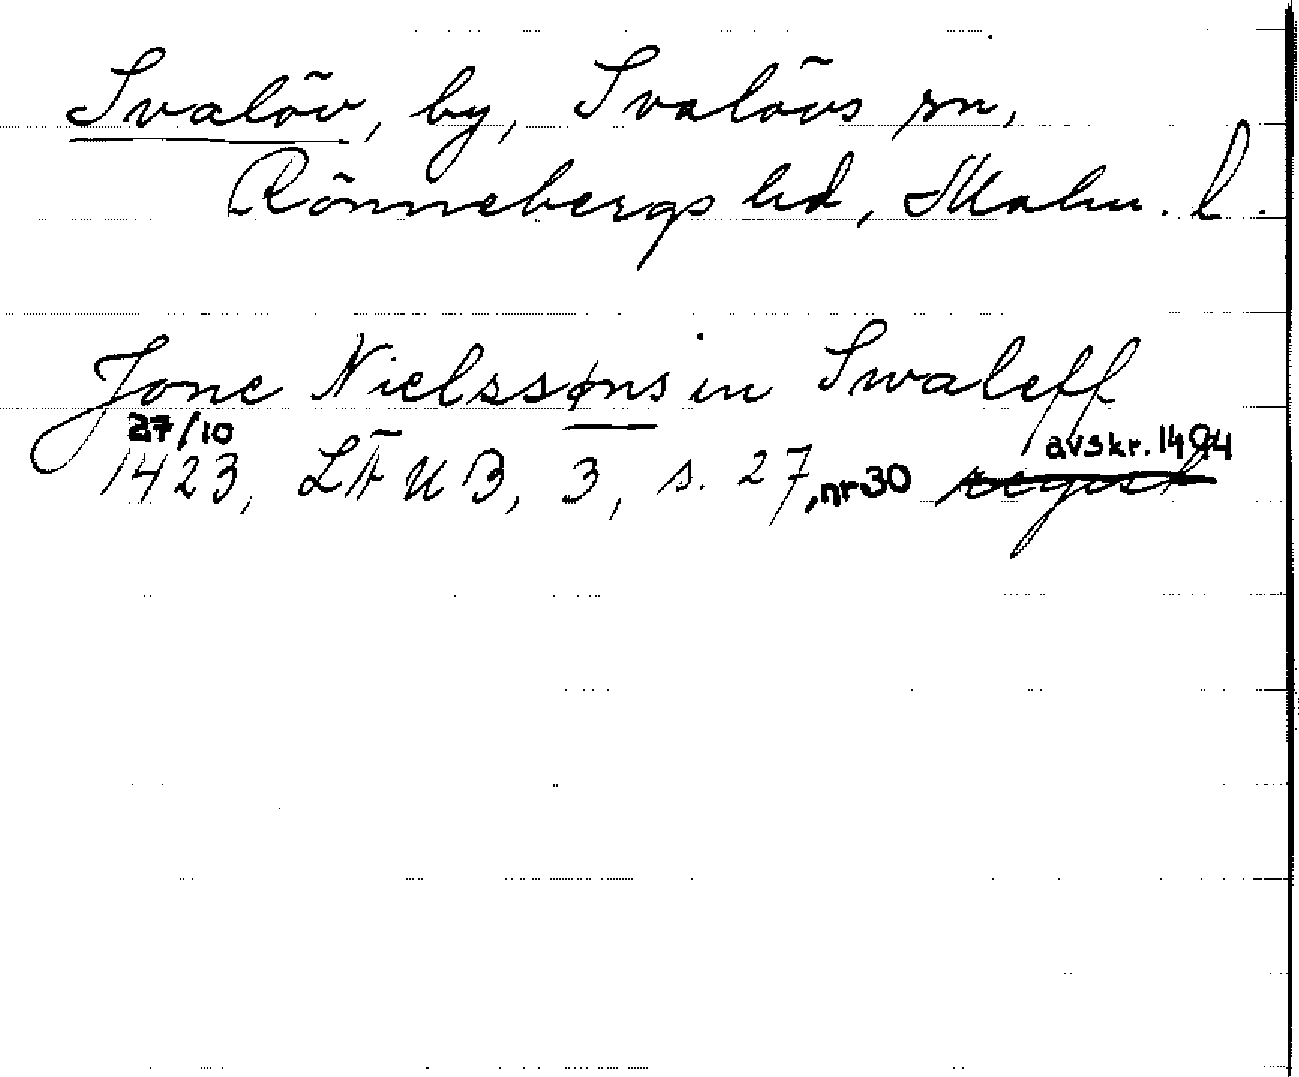 Svalöv, by, Svalövs sn,
Rönnebergs hd, Malm. l.
Jone Nielssøns in Swaleff
27/10 avskr. 1494
1423, LÄUB, 3, s. 27, nr 30 regist